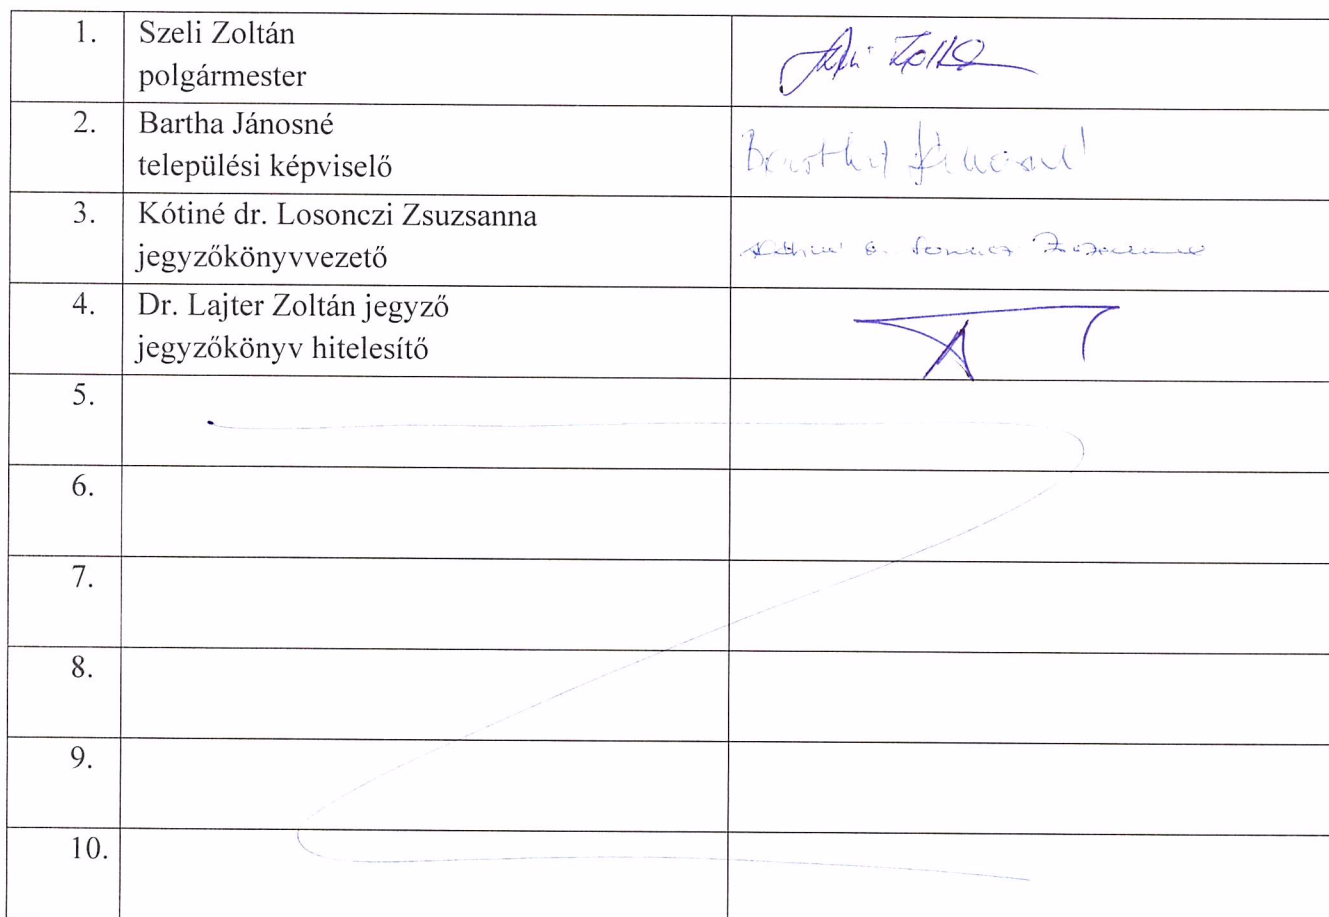 1. Szeli Zoltán
polgármester
2. Bartha Jánosné
települési képviselő
Bartha Jánosné
3. Kótiné dr. Losonczi Zsuzsanna
jegyzőkönyvvezető
4. Dr. Lajter Zoltán jegyző
jegyzőkönyv hitelesítő
5.
6.
7.
8.
9.
10.